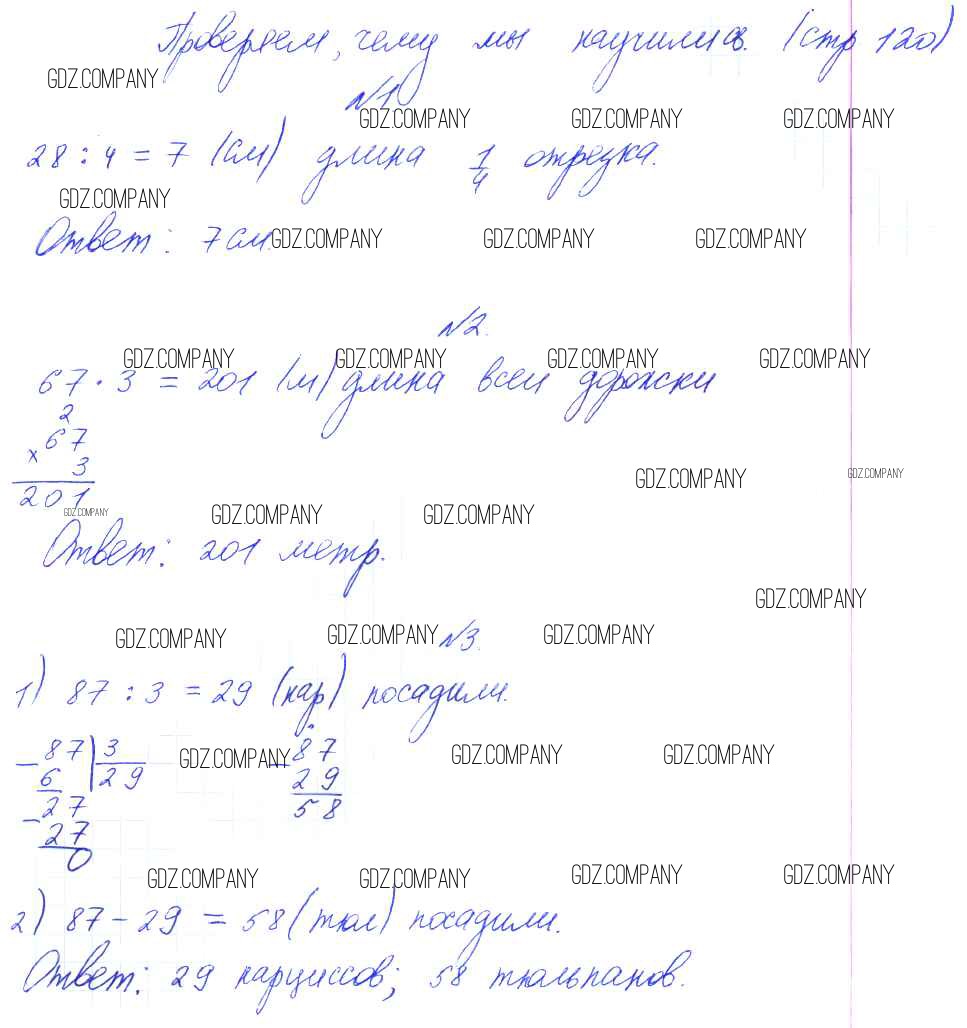 Проверяем, чему мы научились. (стр 120)
GDZ.COMPANY
№1
GDZ.COMPANY GDZ.COMPANY GDZ.COMPANY
28 : 4 = 7 (см) длина 1/4 отрезка.
GDZ.COMPANY
Ответ: 7 см.
GDZ.COMPANY GDZ.COMPANY GDZ.COMPANY
№2.
GDZ.COMPANY GDZ.COMPANY GDZ.COMPANY GDZ.COMPANY
67 · 3 = 201 (м) длина всей дорожки
2
× 67
3
201
GDZ.COMPANY GDZ.COMPANY
GDZ.COMPANY GDZ.COMPANY GDZ.COMPANY
Ответ: 201 метр.
GDZ.COMPANY
GDZ.COMPANY GDZ.COMPANY GDZ.COMPANY
№3.
1) 87 : 3 = 29 (нар) посадили.
− 87 | 3
6 | 29
− 27
27
0
− 87
29
58
GDZ.COMPANY GDZ.COMPANY GDZ.COMPANY
GDZ.COMPANY GDZ.COMPANY GDZ.COMPANY GDZ.COMPANY
2) 87 − 29 = 58 (тюл) посадили.
Ответ: 29 нарциссов; 58 тюльпанов.